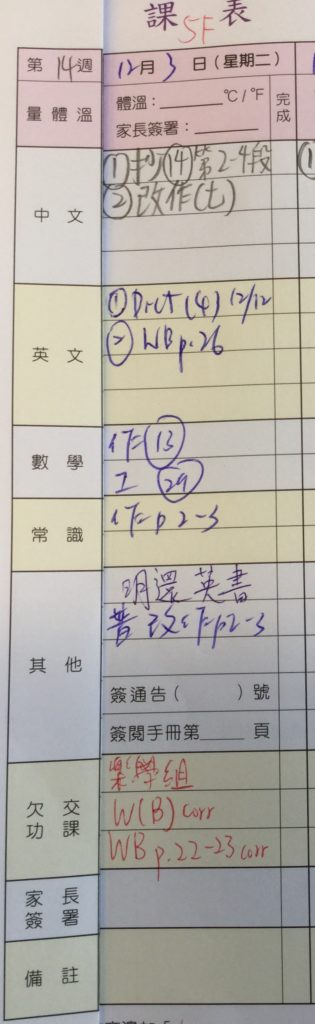 課表
5F
第14週 12月3日(星期二)
量體溫 體溫:______°C/°F 完成
家長簽署:______
中文 ①抄⑭第2-4段
②改作(七)
英文 ①Dict (4) 12/12
② WB p.26
數學 作⑬
工 ㉙
常識 作 p2-3
其他 明還英書
普改作 p2-3
簽通告( )號
簽閱手冊第____頁
欠交功課
W(B) corr
WB p.22-23 corr
家長簽署
備註